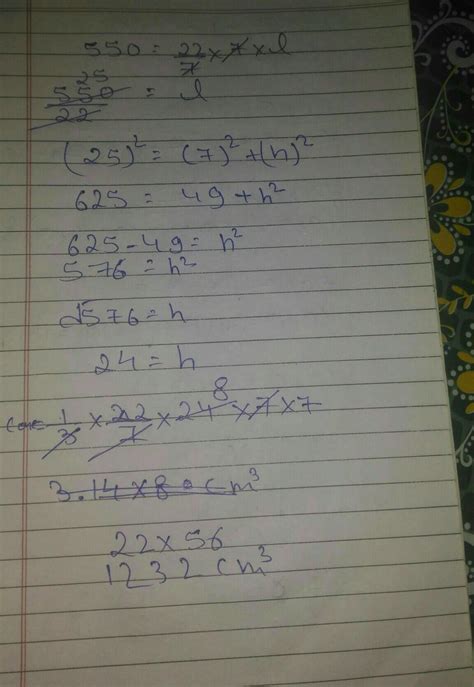 550 = 22/7 × 7 × l
25
550/22 = l
(25)² = (7)² + (h)²
625 = 49 + h²
625 - 49 = h²
576 = h²
√576 = h
24 = h
8
1/3 × 22/7 × 24 × 7 × 7
3.14 × 8 = cm³
22 × 56
1232 cm³